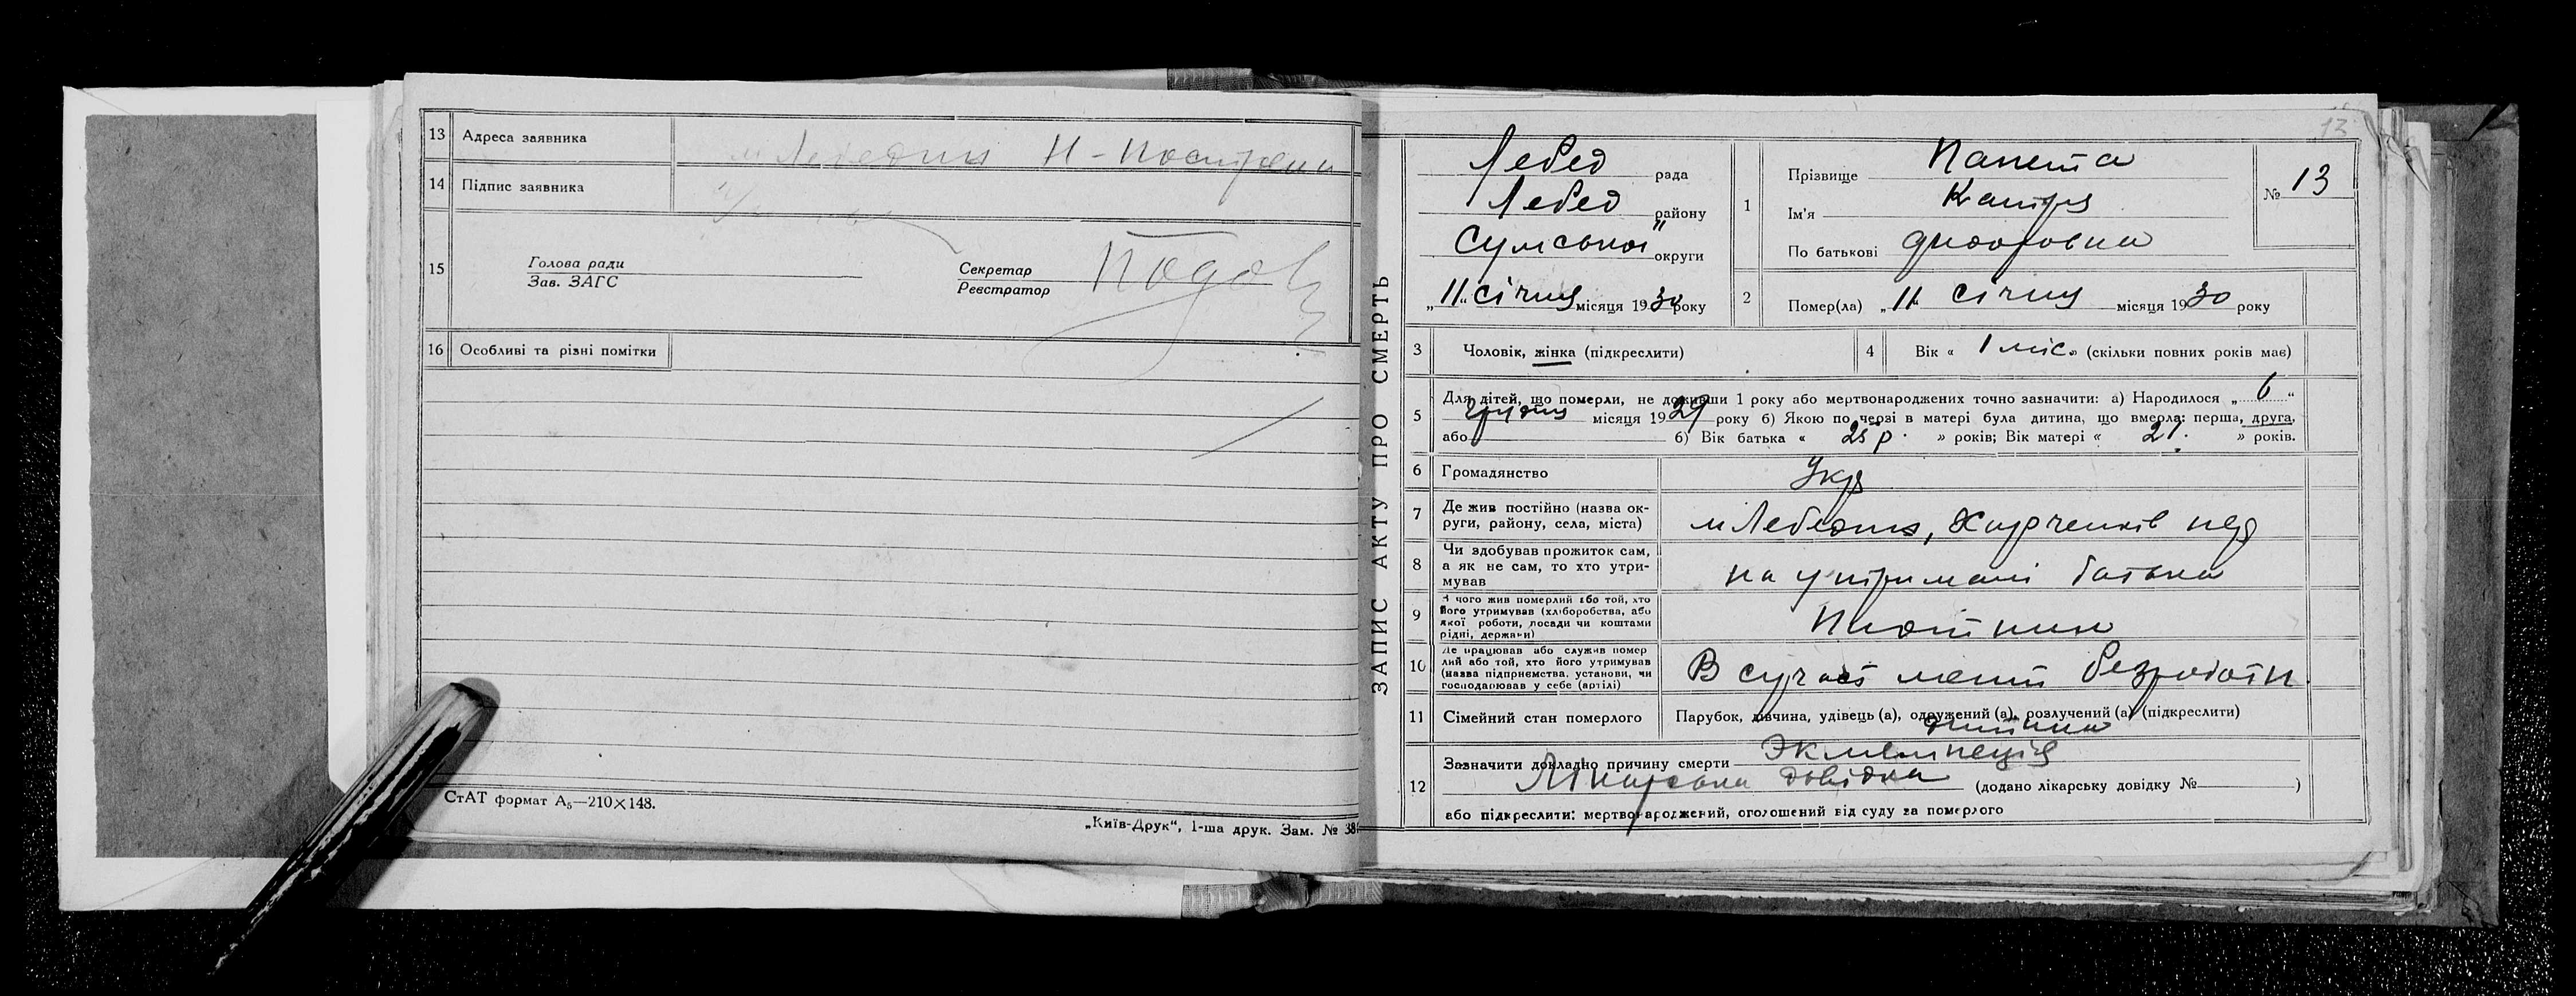 13 Адреса заявника м Лебедин
14 Підпис заявника
15 Голова ради
Зав. ЗАГС
Секретар
Реєстратор
16 Особливі та різні помітки
СтАТ формат А₅—210×148.
„Київ-Друк“, 1-ша друк. Зам. № 38
ЗАПИС АКТУ ПРО СМЕРТЬ
13
Лебед рада
Лебед району
Сумської округи
„11“ січня місяця 1930 року
1 Прізвище
Ім'я Катря
По батькові
№ 13
2 Помер(ла) „11“ січня місяця 1930 року
3 Чоловік, жінка (підкреслити)
4 Вік « 1 міс » (скільки повних років має)
5 Для дітей, що померли, не доживши 1 року або мертвонароджених точно зазначити: а) Народилося „ 6 “
грудня місяця 1929 року б) Якою по черзі в матері була дитина, що вмерла: перша, друга,
або б) Вік батька « 25 р. » років; Вік матері « 21. » років.
6 Громадянство Укр
7 Де жив постійно (назва ок-
руги, району, села, міста) м Лебедин,
8 Чи здобував прожиток сам,
а як не сам, то хто утри-
мував на утриманні батька
9 З чого жив померлий або той, хто
його утримував (хліборобства, або
якої роботи, посади чи коштами
рідні, держави)
10 Де працював або служив помер
лий або той, хто його утримував
(назва підприємства, установи, чи
господарював у себе (артілі) В сучас мент безробітн
11 Сімейний стан померлого Парубок, дівчина, удівець (а), одружений (а), розлучений (а) (підкреслити)
дитина
12 Зазначити докладно причину смерти
Лікарська довідка (додано лікарську довідку № )
або підкреслити: мертвонароджений, оголошений від суду за померлого